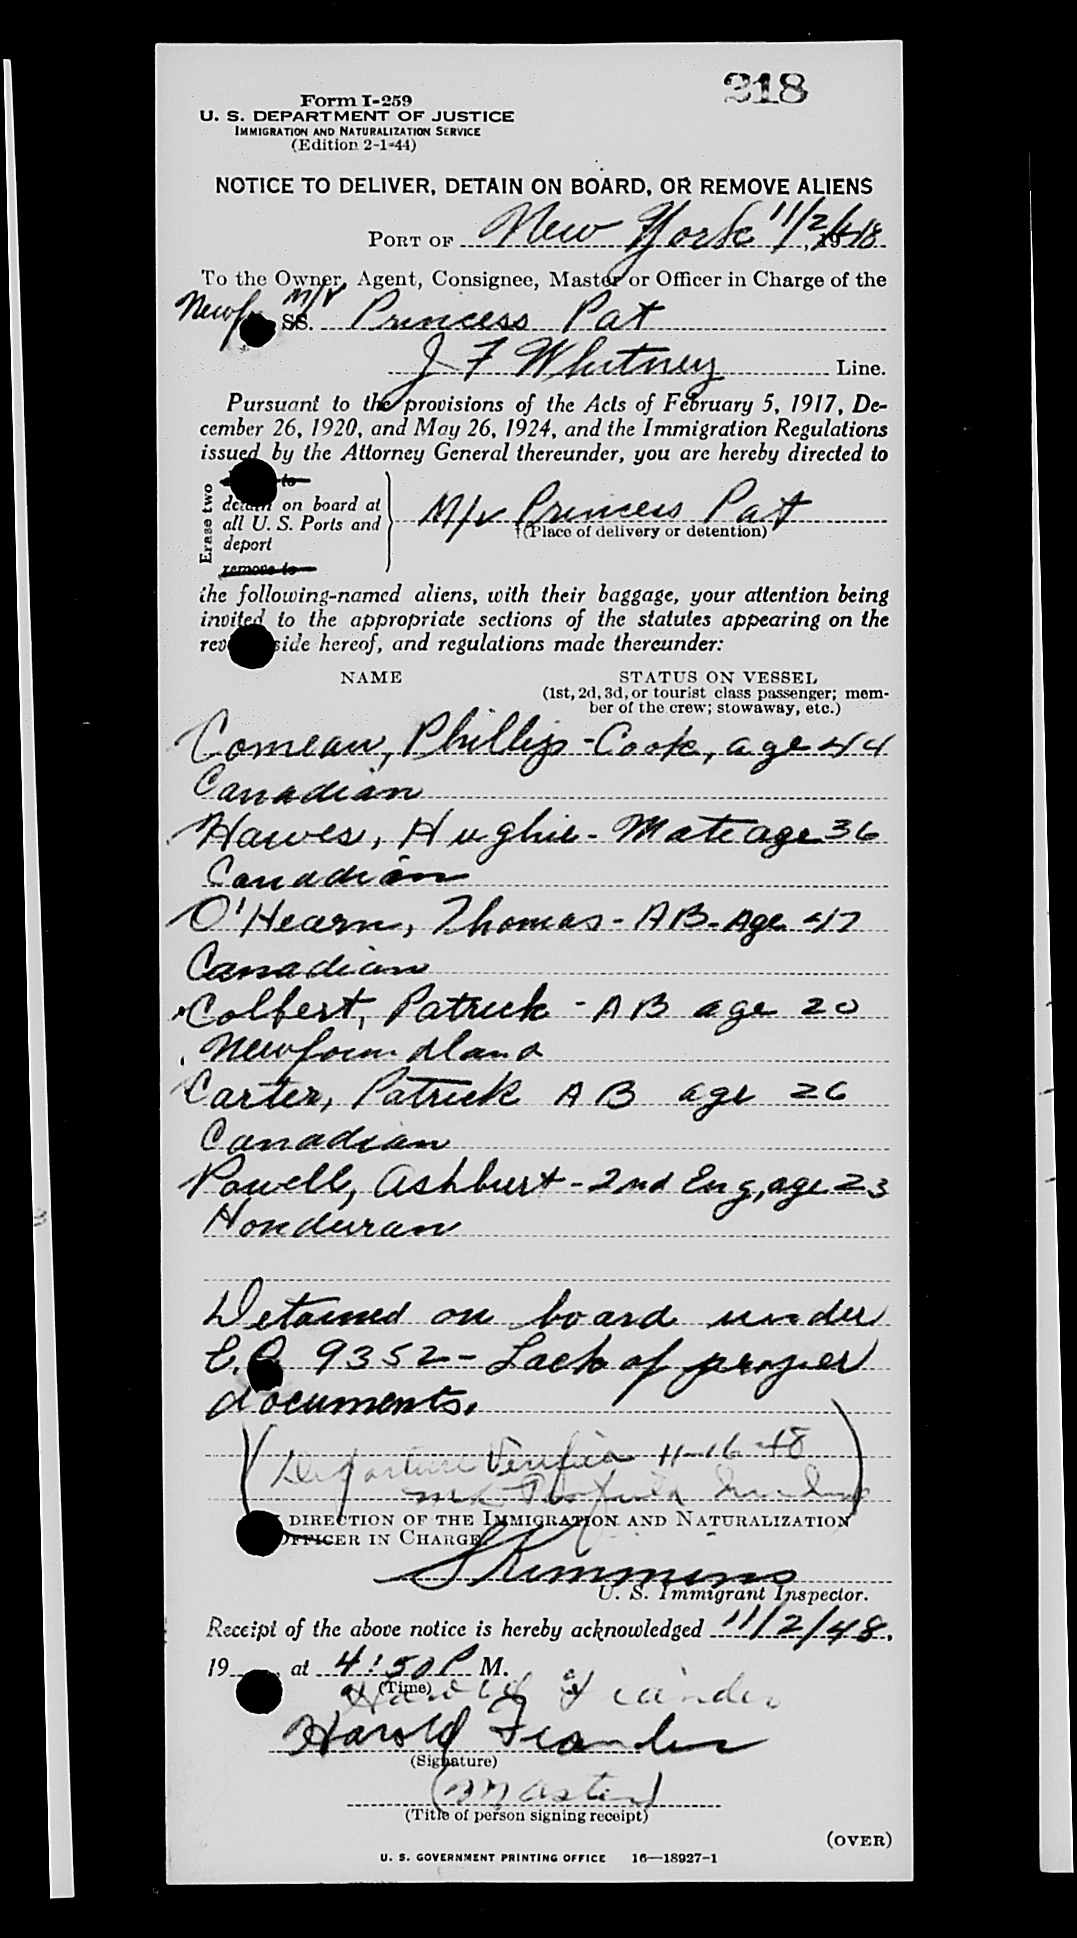 218
Form I-259
U. S. DEPARTMENT OF JUSTICE
IMMIGRATION AND NATURALIZATION SERVICE
(Edition 2-1-44)
NOTICE TO DELIVER, DETAIN ON BOARD, OR REMOVE ALIENS
PORT OF New York 11/2/48
To the Owner, Agent, Consignee, Master or Officer in Charge of the
M/V
SS. Princess Pat
J F Whitney Line.
Pursuant to the provisions of the Acts of February 5, 1917, De-
cember 26, 1920, and May 26, 1924, and the Immigration Regulations
issued by the Attorney General thereunder, you are hereby directed to
Erase two
to
detain on board at
all U. S. Ports and
deport
remove to
M/v Princess Pat
(Place of delivery or detention)
the following-named aliens, with their baggage, your attention being
invited to the appropriate sections of the statutes appearing on the
side hereof, and regulations made thereunder:
NAME STATUS ON VESSEL
(1st, 2d, 3d, or tourist class passenger; mem-
ber of the crew; stowaway, etc.)
Comeau, Phillip - Cook, age 44
Canadian
Hawes, Hughie - Mate age 36
Canadian
O'Hearn, Thomas - AB - Age 47
Canadian
Colbert, Patrick - AB age 20
Newfoundland
Carter, Patrick AB age 26
Canadian
Powell, Ashburt - 2nd Eng, age 23
Honduran
Detained on board under
E.O. 9352 - Lack of proper
documents.
(Departure Verified 11-16-48
DIRECTION OF THE IMMIGRATION AND NATURALIZATION
OFFICER IN CHARGE.
S Kimmins
U. S. Immigrant Inspector.
Receipt of the above notice is hereby acknowledged 11/2/48,
19 at 4:50 P M.
(Time)
Harold
Harold
(Signature)
(Master)
(Title of person signing receipt)
(OVER)
U. S. GOVERNMENT PRINTING OFFICE 16—18927-1